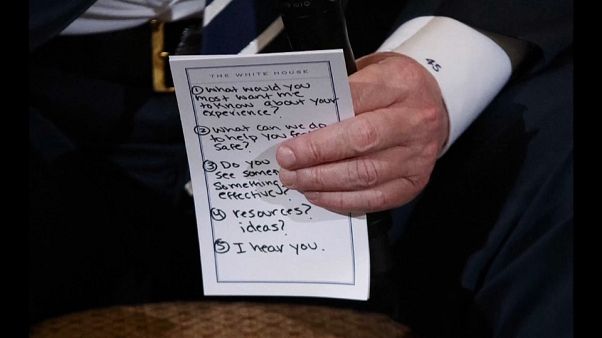 THE WHITE HOUSE
① What would you
most want me
to know about your
experience?
② What can we do
to help you
safe?
③ Do you
see
effective?
④ resources?
ideas?
⑤ I hear you.
45